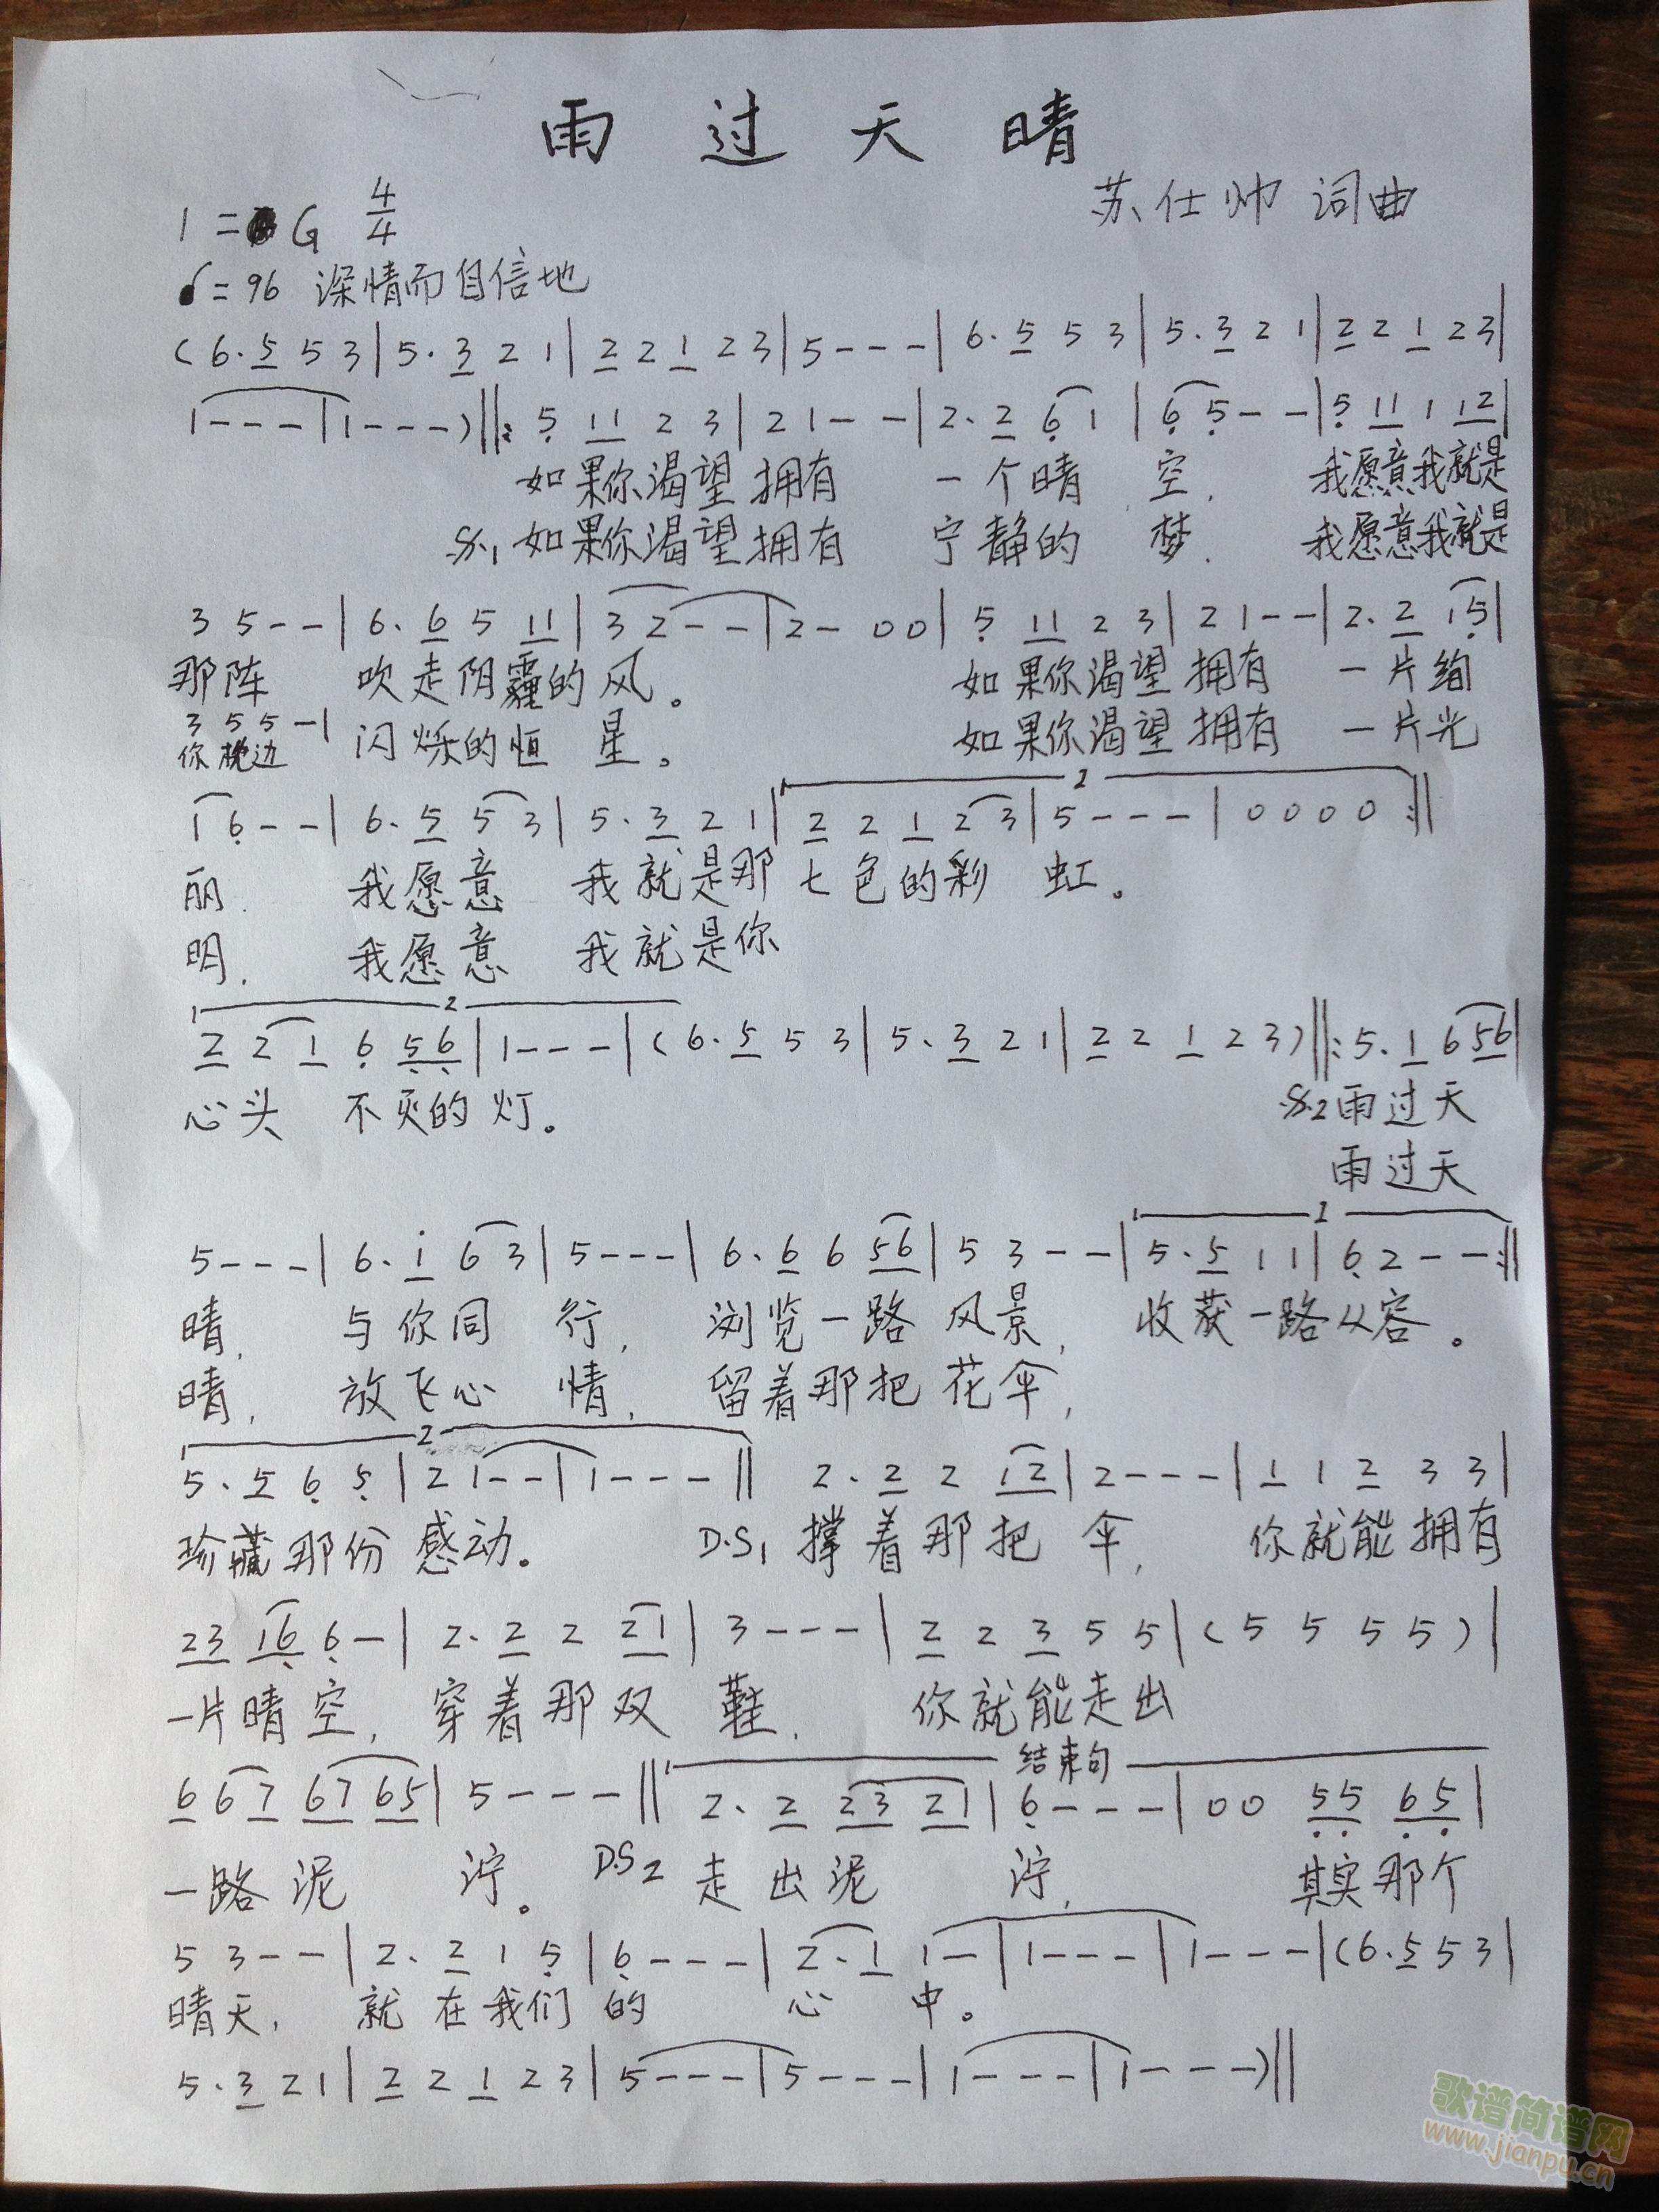 雨过天晴
苏仕帅 词曲
1=G 4/4
♩=96 深情而自信地
(6.5 5 3|5.3 2 1|2 2 1 2 3|5---|6.5 5 3|5.3 2 1|2 2 1 2 3|
1---|1---)||: 5 11 2 3|2 1--|2.2 6 1|6 5--|5 11 1 12|
如果你渴望拥有 一个晴空, 我愿意我就是
S.1 如果你渴望拥有 宁静的梦. 我愿意我就是
3 5--|6.6 5 11|3 2--|2-00|5 11 2 3|2 1--|2.2 15|
那阵 吹走阴霾的风。 如果你渴望拥有 一片绚
3 5 5-|
你枕边 闪烁的恒星。 如果你渴望拥有 一片光
1
1 6--|6.5 5 3|5.3 2 1|2 2 1 2 3|5---|0000:||
丽. 我愿意 我就是那七色的彩虹。
明. 我愿意 我就是你
2
2 2 1 6 56|1---|(6.5 5 3|5.3 2 1|2 2 1 2 3)||:5.1 6 56|
心头 不灭的灯。 S.2 雨过天
雨过天
1
5---|6.1 6 3|5---|6.6 6 56|5 3--|5.5 1 1|6 2--:||
晴, 与你同行, 浏览一路风景, 收获一路从容。
晴, 放飞心情, 留着那把花伞,
2
5.5 6 5|2 1--|1---|| 2.2 2 12|2---|1 1 2 3 3|
珍藏那份感动。 D.S1 撑着那把伞, 你就能拥有
23 16 6-|2.2 2 21|3---|2 2 3 5 5|(5 5 5 5)|
一片晴空, 穿着那双鞋, 你就能走出
结束句
6 6 7 67 65|5---||2.2 23 21|6---|00 55 65|
一路泥泞。 D.S2 走出泥泞, 其实那个
5 3--|2.2 1 5|6---|2.1 1-|1---|1---|(6.5 5 3|
晴天, 就在我们的 心中。
5.3 2 1|2 2 1 2 3|5---|5---|1---|1---)||
歌谱简谱网
www.jianpu.cn